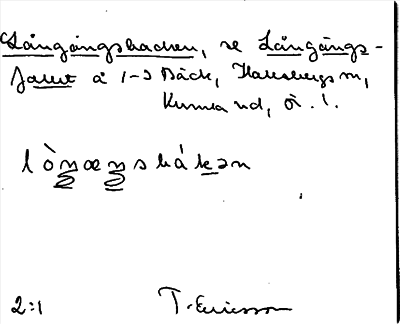 Långångsbacken, se Långångs-
fallet å 1-3 Bäck, Hallsbergs sn,
Kumla hd, Ö. l.
lòŋæŋsbákən
2:1 T. Ericsson